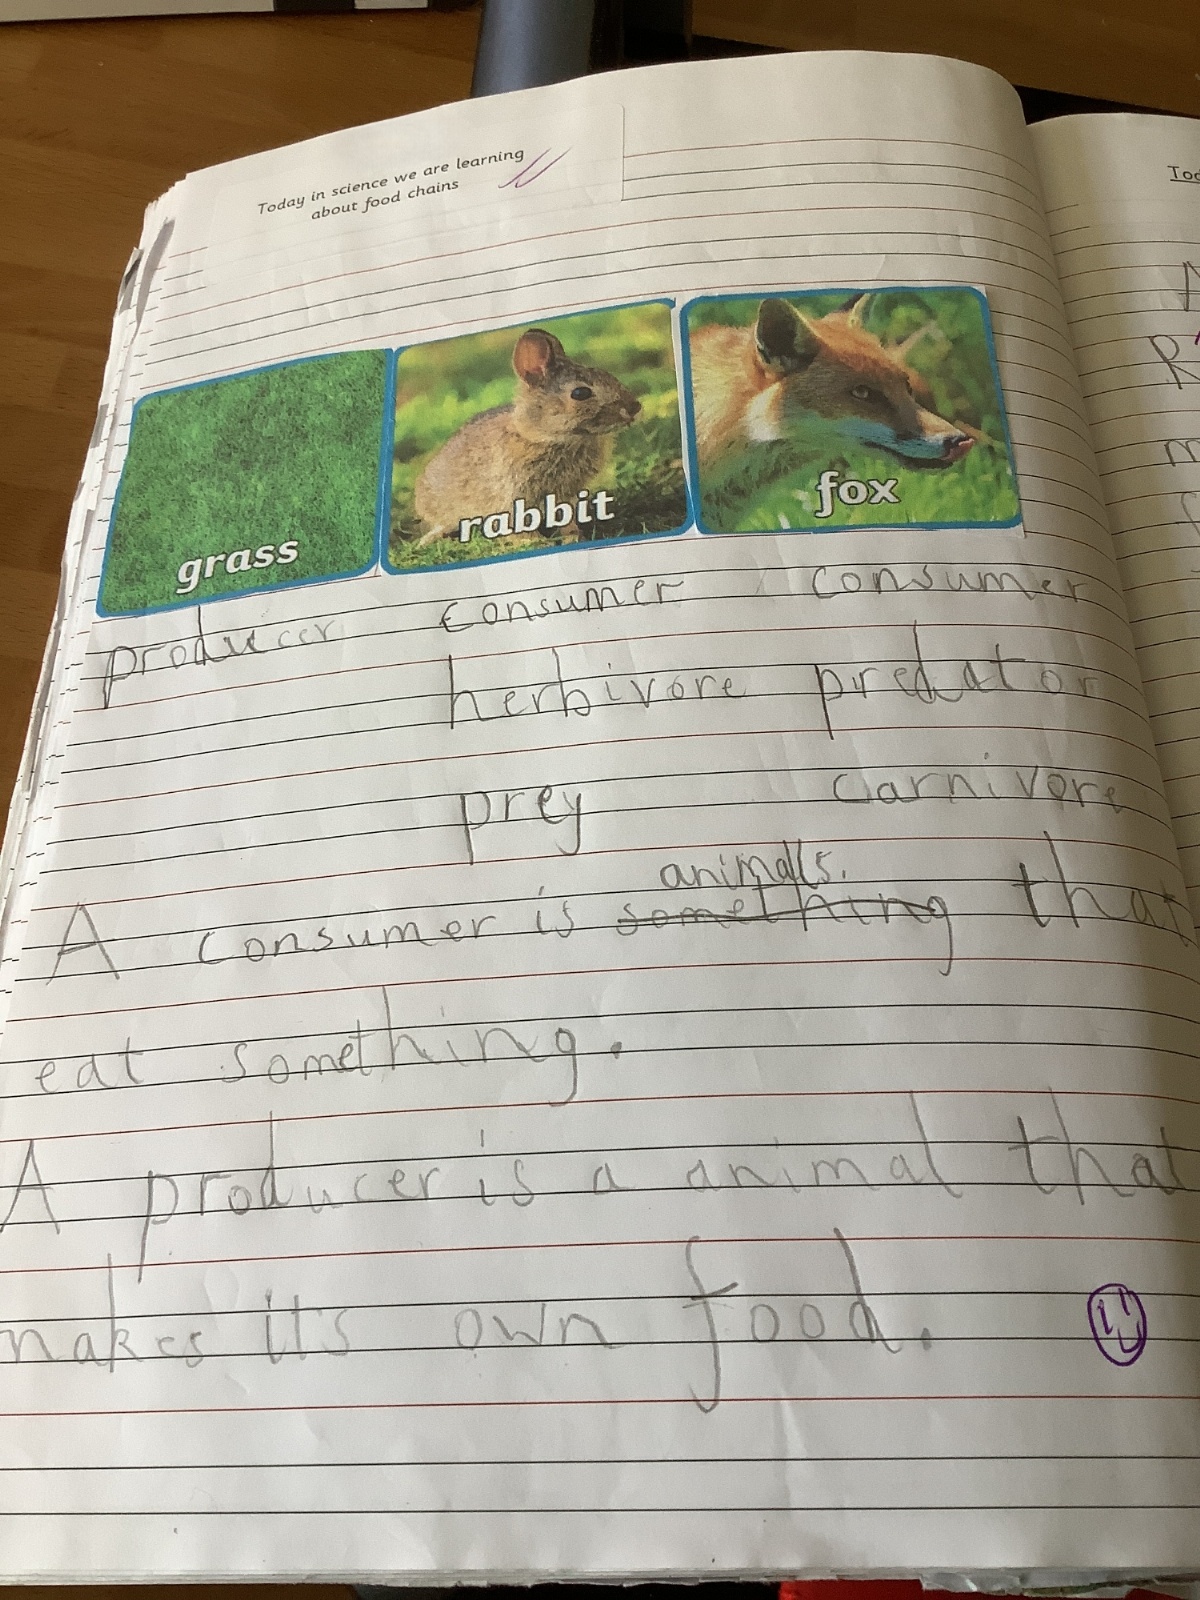 Today in science we are learning
about food chains
grass rabbit fox
producer consumer consumer
herbivore predator
prey carnivore
animals.
A consumer is something that
eat something.
A producer is a animal that
makes it's own food.